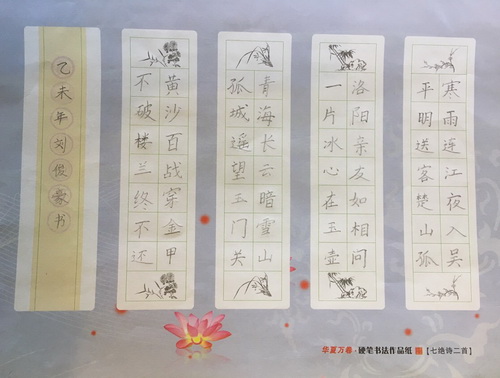 寒雨连江夜入吴
平明送客楚山孤
洛阳亲友如相问
一片冰心在玉壶
青海长云暗雪山
孤城遥望玉门关
黄沙百战穿金甲
不破楼兰终不还
乙未年刘俊豪书
华夏万卷·硬笔书法作品纸【七绝诗二首】